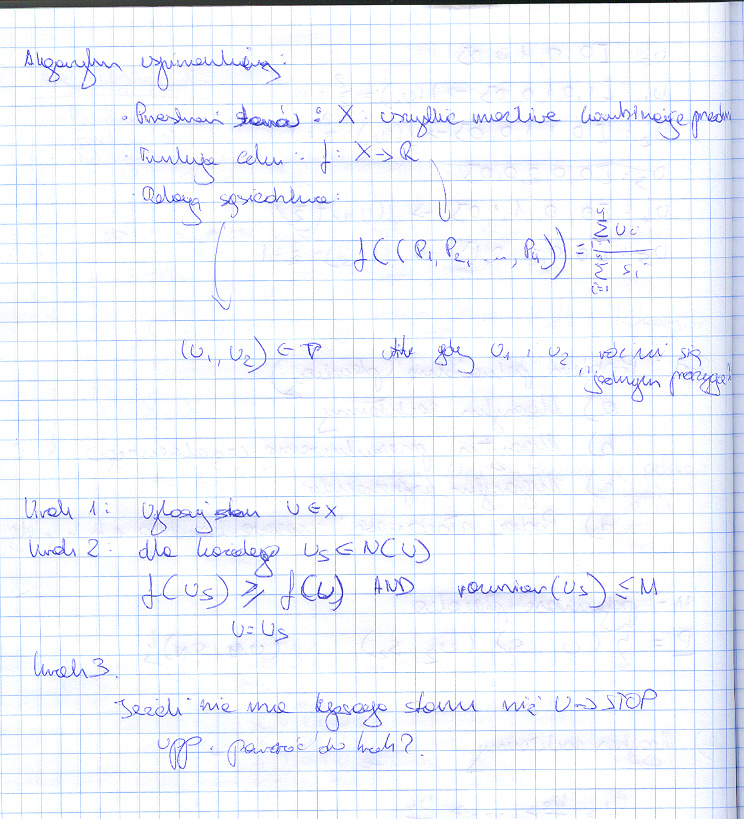 Algorytm wspinaczkowy:
· Przestrzeń stanów : X wszystkie możliwe kombinacje przedm
· Funkcja celu : f: X → R
· Relacja sąsiedztwa:
f((P₁, P₂, ..., P₄)) =
(U₁, U₂) ∈ gdy U₁ i U₂ różni się
"jednym
Krok 1: Wylosuj stan U ∈ X
Krok 2. dla każdego U_S ∈ N(U)
f(U_S) ⩾ f(U) AND rozmiar(U_S) ≤ M
U = U_S
Krok 3.
Jeżeli nie ma lepszego stanu niż U → STOP
wpp. powróć do krok 2.